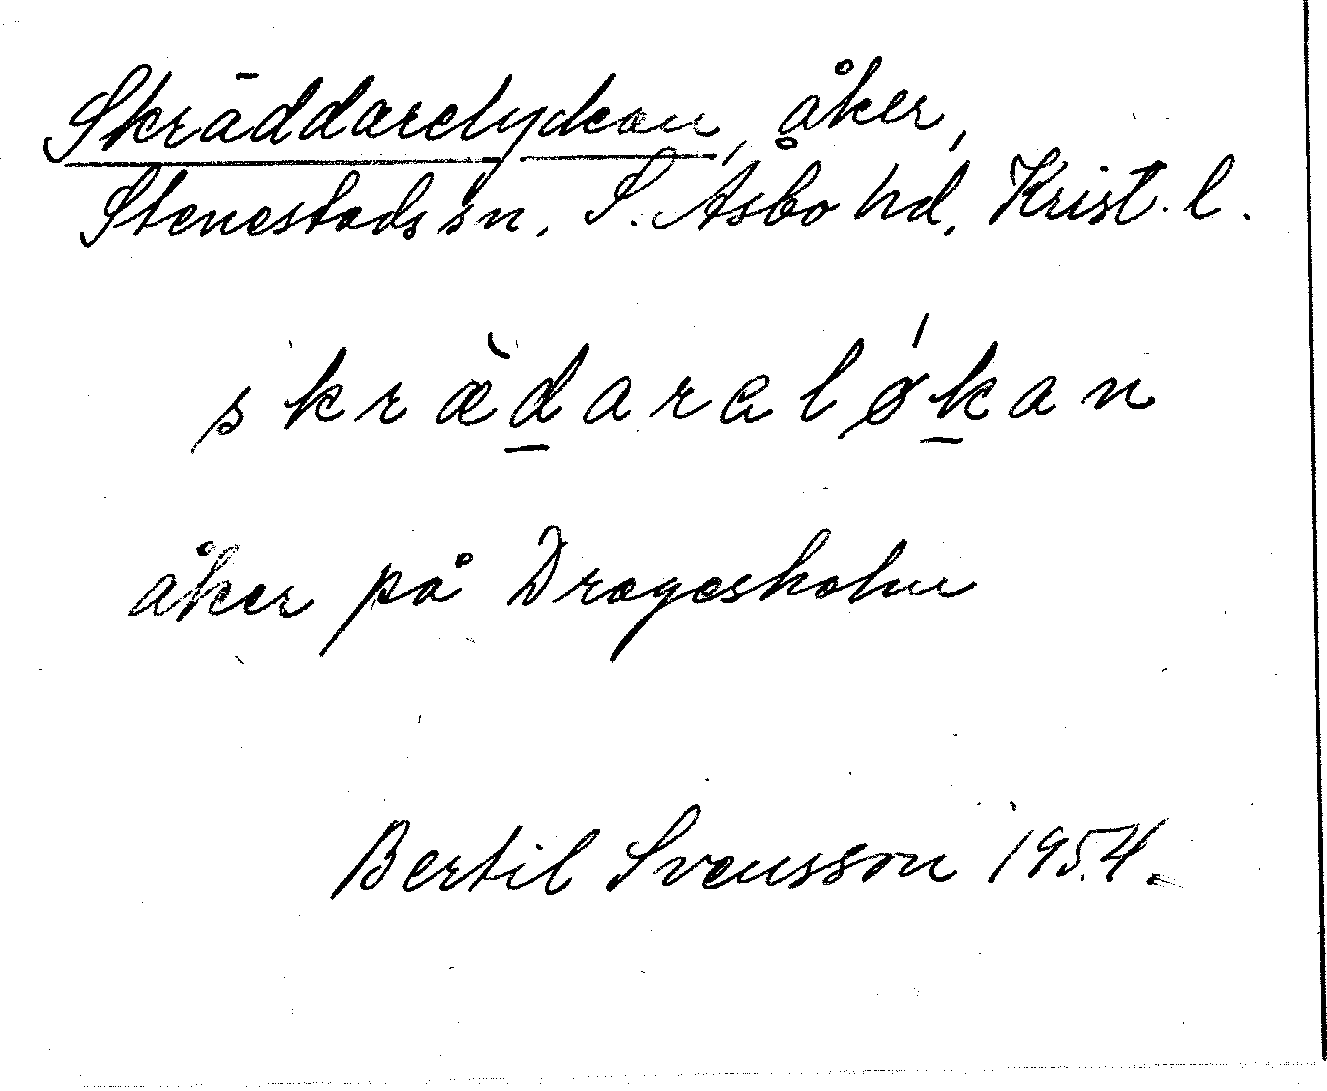 Skräddarelyckan, åker,
Stenestads sn. S. Åsbo hd. Krist. l.
skræ̀d̲arαlǿk̲an
åker på Dragesholm
Bertil Svensson 1954.